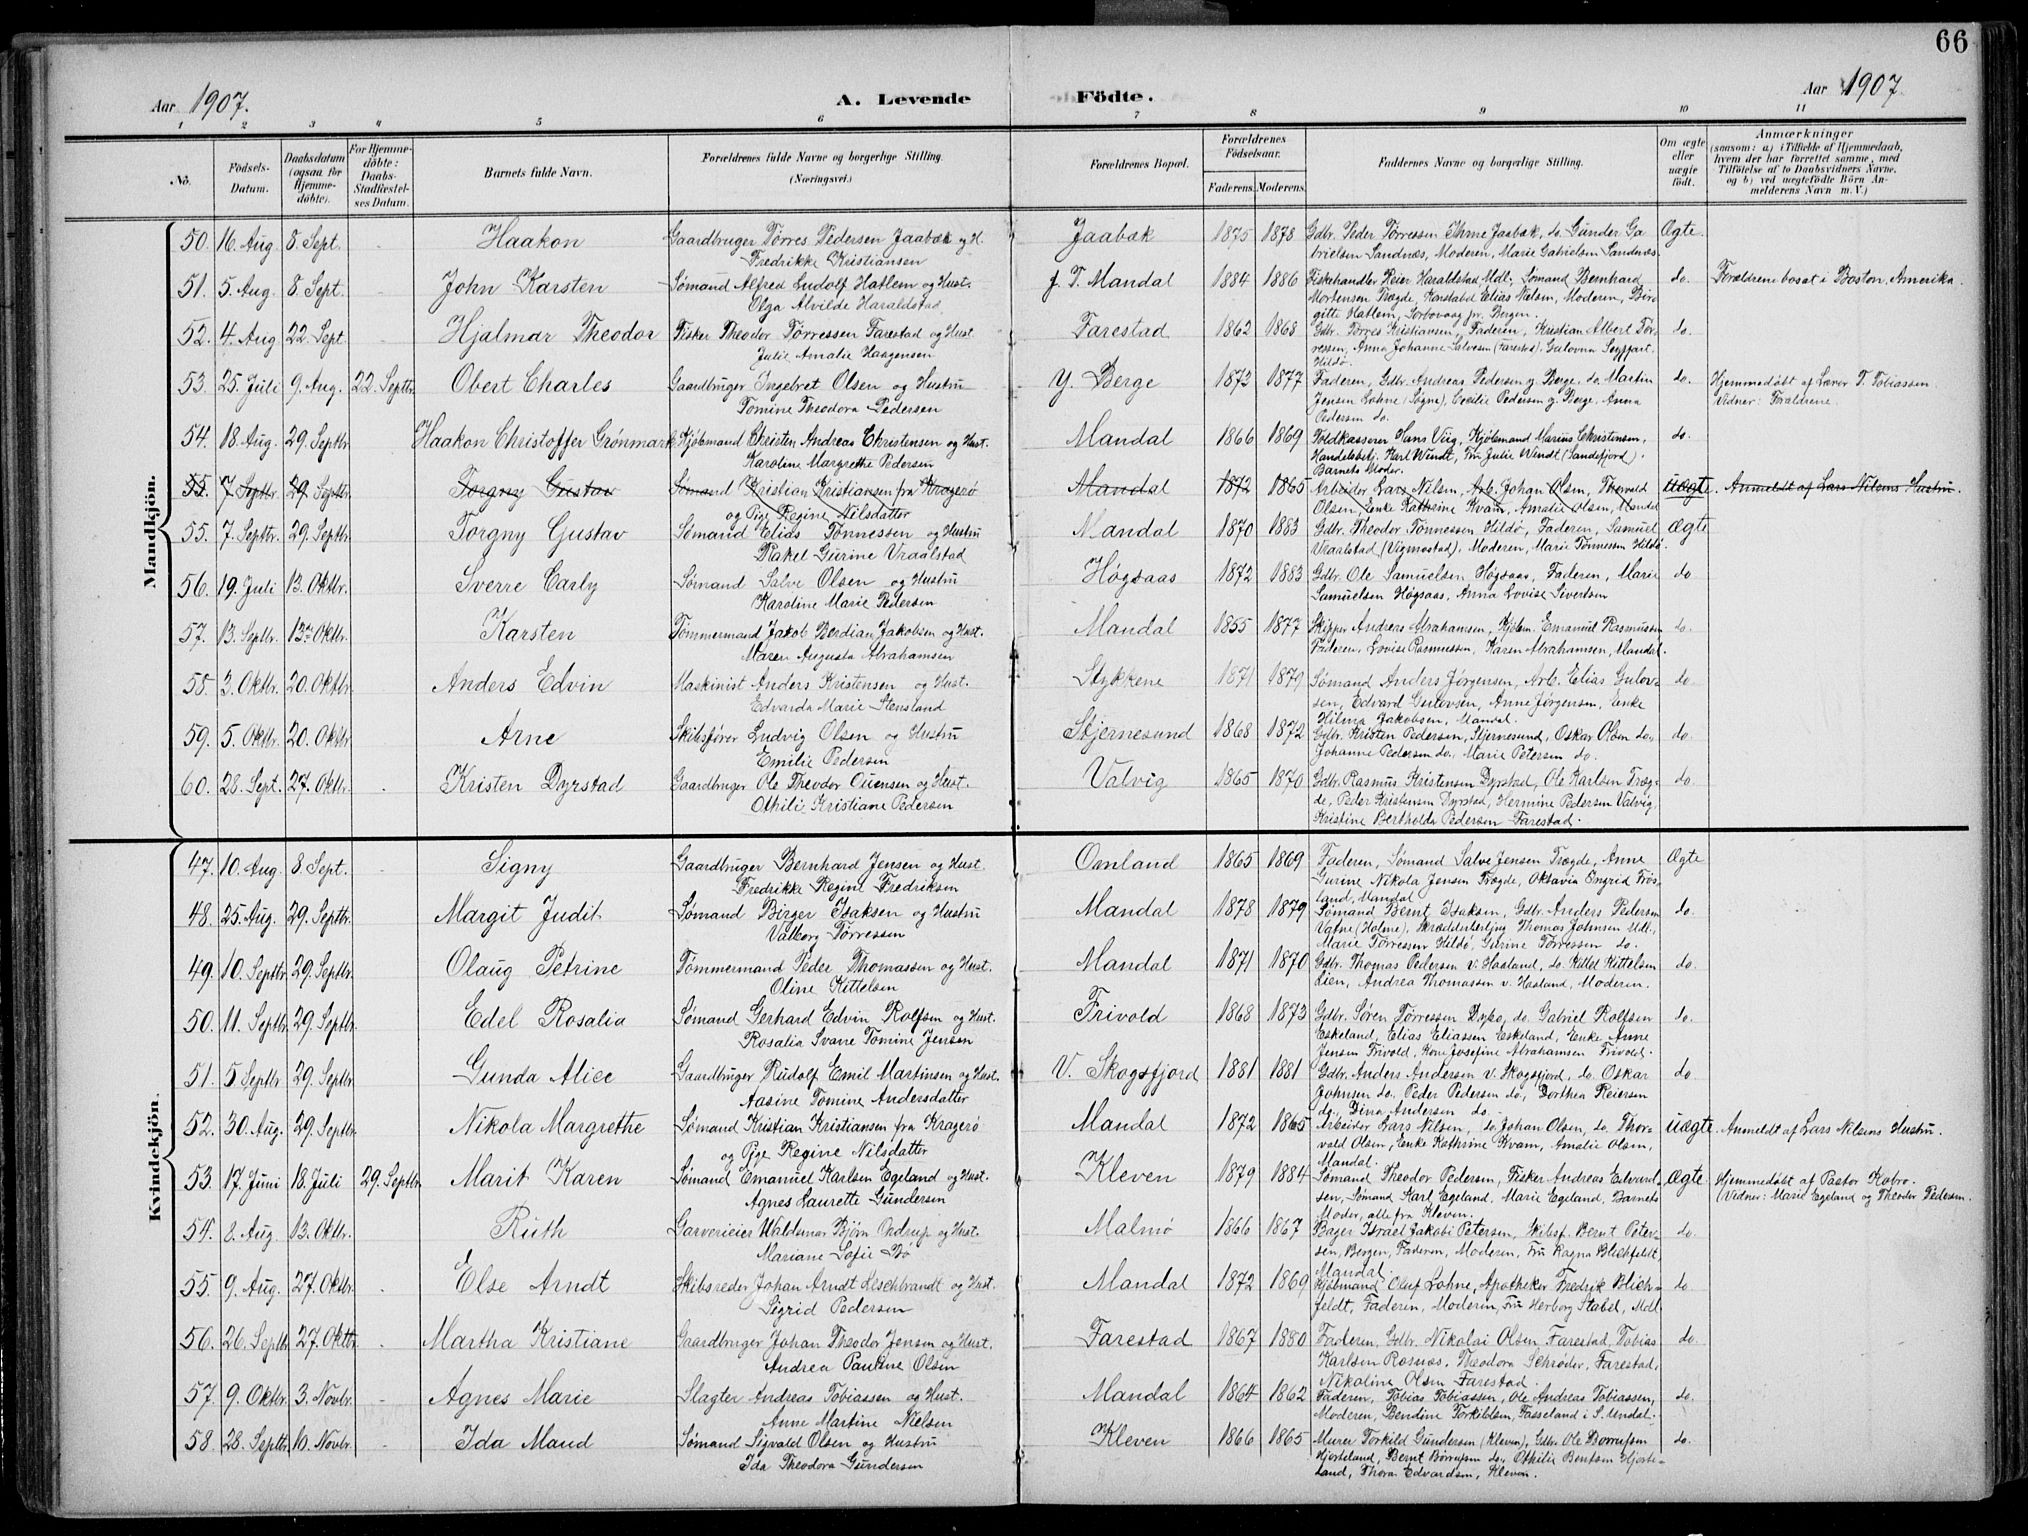 66
Aar 1907.
A. Levende Födte.
Aar 1907
1 2 3 4 5 6 7 8 9 10 11
No.
Födsels-Datum.
Daabsdatum (ogsaa for Hjemme-döbte).
For Hjemme-döbte: Daabs-Stadfæstel-ses Datum.
Barnets fulde Navn.
Forældrenes fulde Navne og borgerlige Stilling. (Næringsvei.)
Forældrenes Bopæl.
Forældrenes Födselsaar.
Faderens. Moderens.
Faddernes Navne og borgerlige Stilling.
Om ægte eller uægte födt.
Anmærkninger (saasom: a) i Tilfælde af Hjemmedaab, hvem der har forrettet samme, med Tilföielse af to Daabsvidners Navne, og b) ved uægtefödte Börn Anmelderens Navn m. V.)
Mandkjön.
50. 16. Aug. 8. Sept. Haakon Gaardbruger Tørres Pedersen Jaabæk og H. Jaabæk 1875 1878 Gdbr. Peder Tørressen Ihme Jaabæk, do. Gunder Ga- Ægte
Fredrikke Kristiansen brielsen Sandnæs, Moderen, Marie Gabrielsen Sandenæs.
51. 5. Aug. 8. Sept. John Karsten Sømand Alfred Ludolf Hatlem og Hust. f. T. Mandal 1884 1886 Fiskehandler Reier Haraldstad, Mdl., Sømand Bernhard do. Forældrene bosat i Boston, Amerika.
Olga Alvilde Haraldstad Mortensen Trægde, Konstabel Elias Nielsen, Moderen, Bir-
gitte Hatlem, Sorbovaag pr. Bergen.
52. 4. Aug 22. Sept. Hjalmar Theodor Fisker Theodor Tørressen Farestad og Hust. Farestad 1862 1868 Gdbr. Tørres Kristiansen, Faderen, Kristian Albert Tør- do.
Julie Amalie Haagensen ressen, Anna Johanne Salvesen (Farestad), Gulovna Seyffart.
Hildø.
53. 25. Juli 9. Aug. 22. Septbr. Obert Charles Gaardbruger Ingebret Olsen og Hustru Y. Berge 1872 1877 Faderen, Gdbr. Andreas Pedersen y. Berge, do. Martin do. Hjemmedøbt af Lærer T. Tobiassen.
Tomine Theodora Pedersen Jensen Lohne (Søgne), Cecilie Pedersen y. Berge, Anna Vidner: Forældrene.
Pedersen do.
54. 18. Aug. 29. Septbr. Haakon Christoffer Grønmark Kjøbmand Christen Andreas Christensen og Hust. Mandal 1866 1869 Toldkasserer Hans Viig, Kjøbmand Marius Christensen, do.
Karoline Margrethe Pedersen Handelsbetj. Karl Windt, Fru Julie Windt (Sandefjord).
Barnets Moder.
55. 7 Septbr. 29 Septbr. Torgny Gustav Sømand Kristian Kristiansen fra Kragerø Mandal 1872 1865 Arbeider Lars Nilsen, Arb. Johan Olsen, Thorvald uægte. Anmeldt af Lars Nilsens Hustru.
og Pige Regine Nilsdatter Olsen, Enke Kathrine Kvam, Amalie Olsen, Mandal
55. 7. Septbr. 29. Septbr. Torgny Gustav Sømand Elias Tønnessen og Hustru Mandal 1870 1883 Gdbr. Theodor Tønnessen Hildø, Faderen, Samuel Ægte
Rakel Gurine Vraalstad Vraalstad (Vigmostad), Moderen, Marie Tønnesen Hildø.
56. 19. Juli 13. Oktbr. Sverre Carly Sømand Salve Olsen og Hustru Høgsaas 1872 1883 Gdbr. Ole Samuelsen Høgsaas, Faderen, Marie do
Karoline Marie Pedersen Samuelsen Høgsaas, Anna Lovise Sivertsen
57. 13. Septbr. 13 Oktbr. Karsten Tømmermand Jakob Berdian Jakobsen og Hust. Mandal 1855 1877 Skipper Andreas Abrahamsen, Kjøbm. Emanuel Rasmussen do.
Maren Augusta Abrahamsen Faderen, Lovise Rasmussen, Karen Abrahamsen, Mandal.
58. 3. Oktbr. 20. Oktbr. Anders Edvin Maskinist Anders Kristensen og Hust. Stykkene 1871 1879 Sømand Anders Jørgensen, Arb. Elias Gulov- do.
Edvarda Marie Stensland sen, Edvard Gulovsen, Anne Jørgensen, Enke
Hilma Jakobsen, Mandal.
59. 5. Oktbr. 20. Oktbr Arne Skibsfører Ludvig Olsen og Hustru Stjernesund 1868 1872 Gdbr. Kristen Pedersen, Stjernesund, Oskar Olsen do., do.
Emilie Pedersen Johanne Pedersen do., Marie Petersen do.
60. 28. Sept. 27. Oktbr. Kristen Dyrstad Gaardbruger Ole Theodor Ouensen og Hust. Valvig 1865 1870 Gdbr. Rasmus Kristensen Dyrstad, Ole Karlsen Træg- do.
Othilie Kristiane Pedersen de, Peder Kristensen Dyrstad, Hermine Pedersen Valvig,
Kristine Bertholda Pedersen Farestad.
Kvindekjön.
47. 10. Aug. 8. Sept. Signy Gaardbruger Bernhard Jensen og Hust. Omland 1865 1869 Faderen, Sømand Salve Jensen Trægde, Anne Ægte
Fredrikke Regine Fredriksen Gurine Nikola Jensen Trægde, Oktavia Engrid Frøs-
land, Mandal
48. 25. Aug. 29. Septbr. Margit Judit Sømand Birger Isaksen og Hustru Mandal 1878 1879 Sømand Bernt Isaksen, Gdbr. Anders Pedersen do.
Valborg Tørressen Vatne (Holme), Skrædderlærling Thomas Johnsen Mdl.,
Marie Tørressen Hildø, Gurine Tørressen do.
49. 10. Septbr. 29. Septbr. Olaug Petrine Tømmermand Peder Thomassen og Hust. Mandal 1871 1870 Gdbr. Thomas Pedersen v. Haaland, do. Kittel Kittelsen do.
Oline Kittelsen Lien, Andrea Thomassen v. Haaland, Moderen.
50. 11. Septbr. 29. Septbr. Edel Rosalia Sømand Gerhard Edvin Rolfsen og Hust. Frivold 1868 1873 Gdbr. Søren Tørressen Dybo, do. Gabriel Rolfsen do.
Rosalia Svane Tomine Jensen Eskeland, Elias Eliassen Eskeland, Enke Anne
Jensen Frivold, Kone Josefine Abrahamsen Frivold.
51. 5 Septbr 29. Septbr. Gunda Alice Gaardbruger Rudolf Emil Martinsen og Hust. V. Skogsfjord 1881 1881 Gdbr. Anders Andersen v. Skogsfjord, do. Oskar do
Aasine Tomine Andersdatter Johnsen do. Peder Pedersen do, Dorthea Reiersen
do, Dina Andersen do.
52. 30. Aug. 29. Septbr. Nikola Margrethe Sømand Kristian Kristiansen fra Kragerø Mandal 1872 1865 Arbeider Lars Nilsen, do. Johan Olsen, do. Thor- uægte. Anmeldt af Lars Nilsens Hustru.
og Pige Regine Nilsdatter vald Olsen, Enke Kathrine Kvam, Amalie Olsen,
Mandal.
53. 17. Juni 18. Juli 29. Septbr. Marit Karen Sømand Emanuel Karlsen Egeland og Hust. Kleven 1879 1884 Sømand Theodor Pedersen, Fisker Andreas Edvard- Ægte Hjemmedøbt af Pastor Kobro.
Agnes Laurette Gundersen sen, Sømand Karl Egeland, Marie Egeland, Barnets (Vidner: Marie Egeland og Theodor Pedersen.
Moder, alle fra Kleven.
54. 8. Aug. 13. Oktbr. Ruth Garverieier Waldemar Bjørn Ondrup og Hust. Malmø 1866 1867 Bager Israel Jakobi Petersen, Skibsf. Bernt Peter- do.
Mariane Sofie Bø sen, Bergen, Faderen, Moderen, Fru Ragna Blichfeldt,
Mandal.
55. 9. Aug. 27. Oktbr. Else Arndt Skibsreder Johan Arndt Heschbrandt og Hust. Mandal 1872 1869 Kjøbmand Oluf Lohne, Apotheker Fredrik Blich- do
Sigrid Pedersen feldt, Faderen, Moderen, Fru Herborg Stabel, Mdl
56. 26. Septbr. 27. Oktbr. Martha Kristiane Gaardbruger Johan Theodor Jensen og Hust. Farestad 1867 1880 Faderen, Gdbr. Nikolai Olsen, Farestad, Tobias do.
Andrea Pauline Olsen Karlsen Rosnæs, Theodora Schrøder, Farestad,
Nikoline Olsen Farestad.
57. 9. Oktbr. 3. Novbr. Agnes Marie Slagter Andreas Tobiassen og Hust. Mandal 1864 1862 Faderen, Tobias Tobiassen, Ole Andreas Tobiassen, do.
Anne Martine Nielsen Moderen, Bendine Torkildsen, Fasseland i S. Undal.
58. 28. Septbr. 10. Novbr. Ida Maud Sømand Sigvald Olsen og Hustru Kleven 1866 1865 Murer Torkild Gundersen (Kleven), Gdbr. Ole Børrufsen do.
Ida Theodora Gundersen Hjorteland, Bernt Børrufsen do., Othilie Bentsen Hjorte-
land, Thora Edvardsen, Kleven.